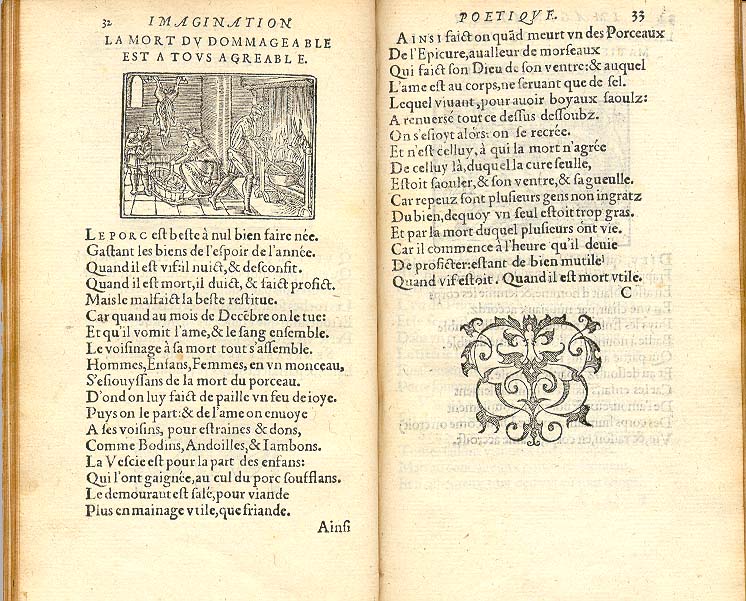 32 IMAGINATION
LA MORT DV DOMMAGEABLE
EST A TOVS AGREABLE.
LE PORC est beste à nul bien faire née.
Gastant les biens de l'espoir de l'année.
Quand il est vif: il nuict, & desconfit.
Quand il est mort, il duict, & faict profict.
Mais le malfaict la beste restitue.
Car quand au mois de Decẽbre on le tue:
Et qu'il vomit l'ame, & le sang ensemble.
Le voisinage à sa mort tout s'assemble.
Hommes, Enfans, Femmes, en vn monceau,
S'esiouyssans de la mort du porceau.
D'ond on luy faict de paille vn feu de ioye.
Puys on le part: & de l'ame on enuoye
A ses voisins, pour estraines & dons,
Comme Bodins, Andoilles, & Iambons.
La Vescie est pour la part des enfans:
Qui l'ont gaignée, au cul du porc soufflans.
Le demourant est salé, pour viande
Plus en mainage vtile, que friande.
Ainsi
POETIQVE. 33
AINSI faict on quãd meurt vn des Porceaux
De l'Epicure, aualleur de morseaux
Qui faict son Dieu de son ventre: & auquel
L'ame est au corps, ne seruant que de sel.
Lequel viuant, pour auoir boyaux saoulz:
A renuersé tout ce dessus dessoubz.
On s'esioyt alors: on se recrée.
Et n'est celluy, à qui la mort n'agrée
De celluy là, duquel la cure seulle,
Estoit saouler, & son ventre, & sa gueulle.
Car repeuz sont plusieurs gens non ingratz
Du bien, dequoy vn seul estoit trop gras.
Et par la mort duquel plusieurs ont vie.
Car il commence à l'heure qu'il deuie
De proficter: estant de bien mutile
Quand vif estoit. Quand il est mort vtile.
C